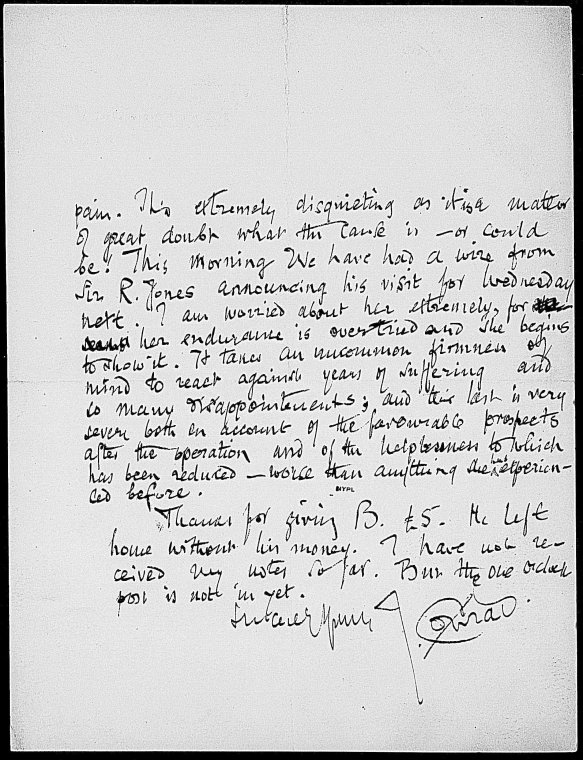 pain. This extremely disquieting as it is a matter
of great doubt what the cause is – or could
be! This morning We have had a wire from
Sir R. Jones announcing his visit for Wednesday
next. I am worried about her extremely, for
her endurance is over tried and she begins
to show it. It takes an uncommon firmness of
mind to react against years of suffering and
so many disappointments; and this last is very
severe both on account of the favourable prospects
after the operation and of the helplessness to which
has been reduced – worse than anything she had experien-
ced before.
NYPL
Thanks for giving B. £5. He left
home without his money. I have not re-
ceived my notes so far. But the one o'clock
post is not in yet.
Sincerely Yours
J. Conrad.